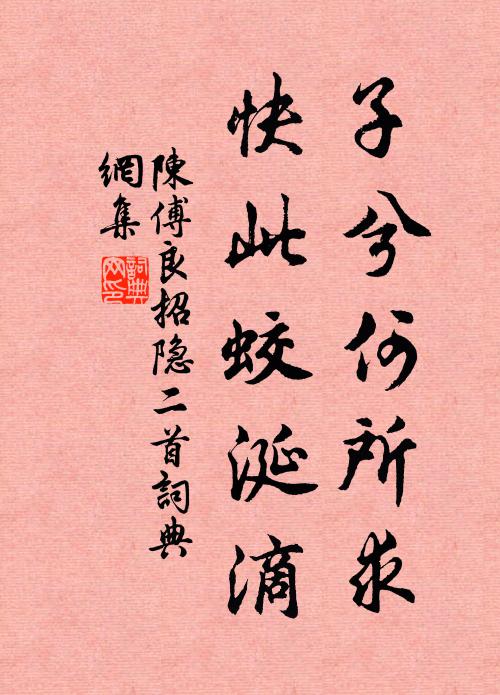 子兮何所求
快此蛟涎滴
陳傅良招隐二首詞典
網集
詞典
网印